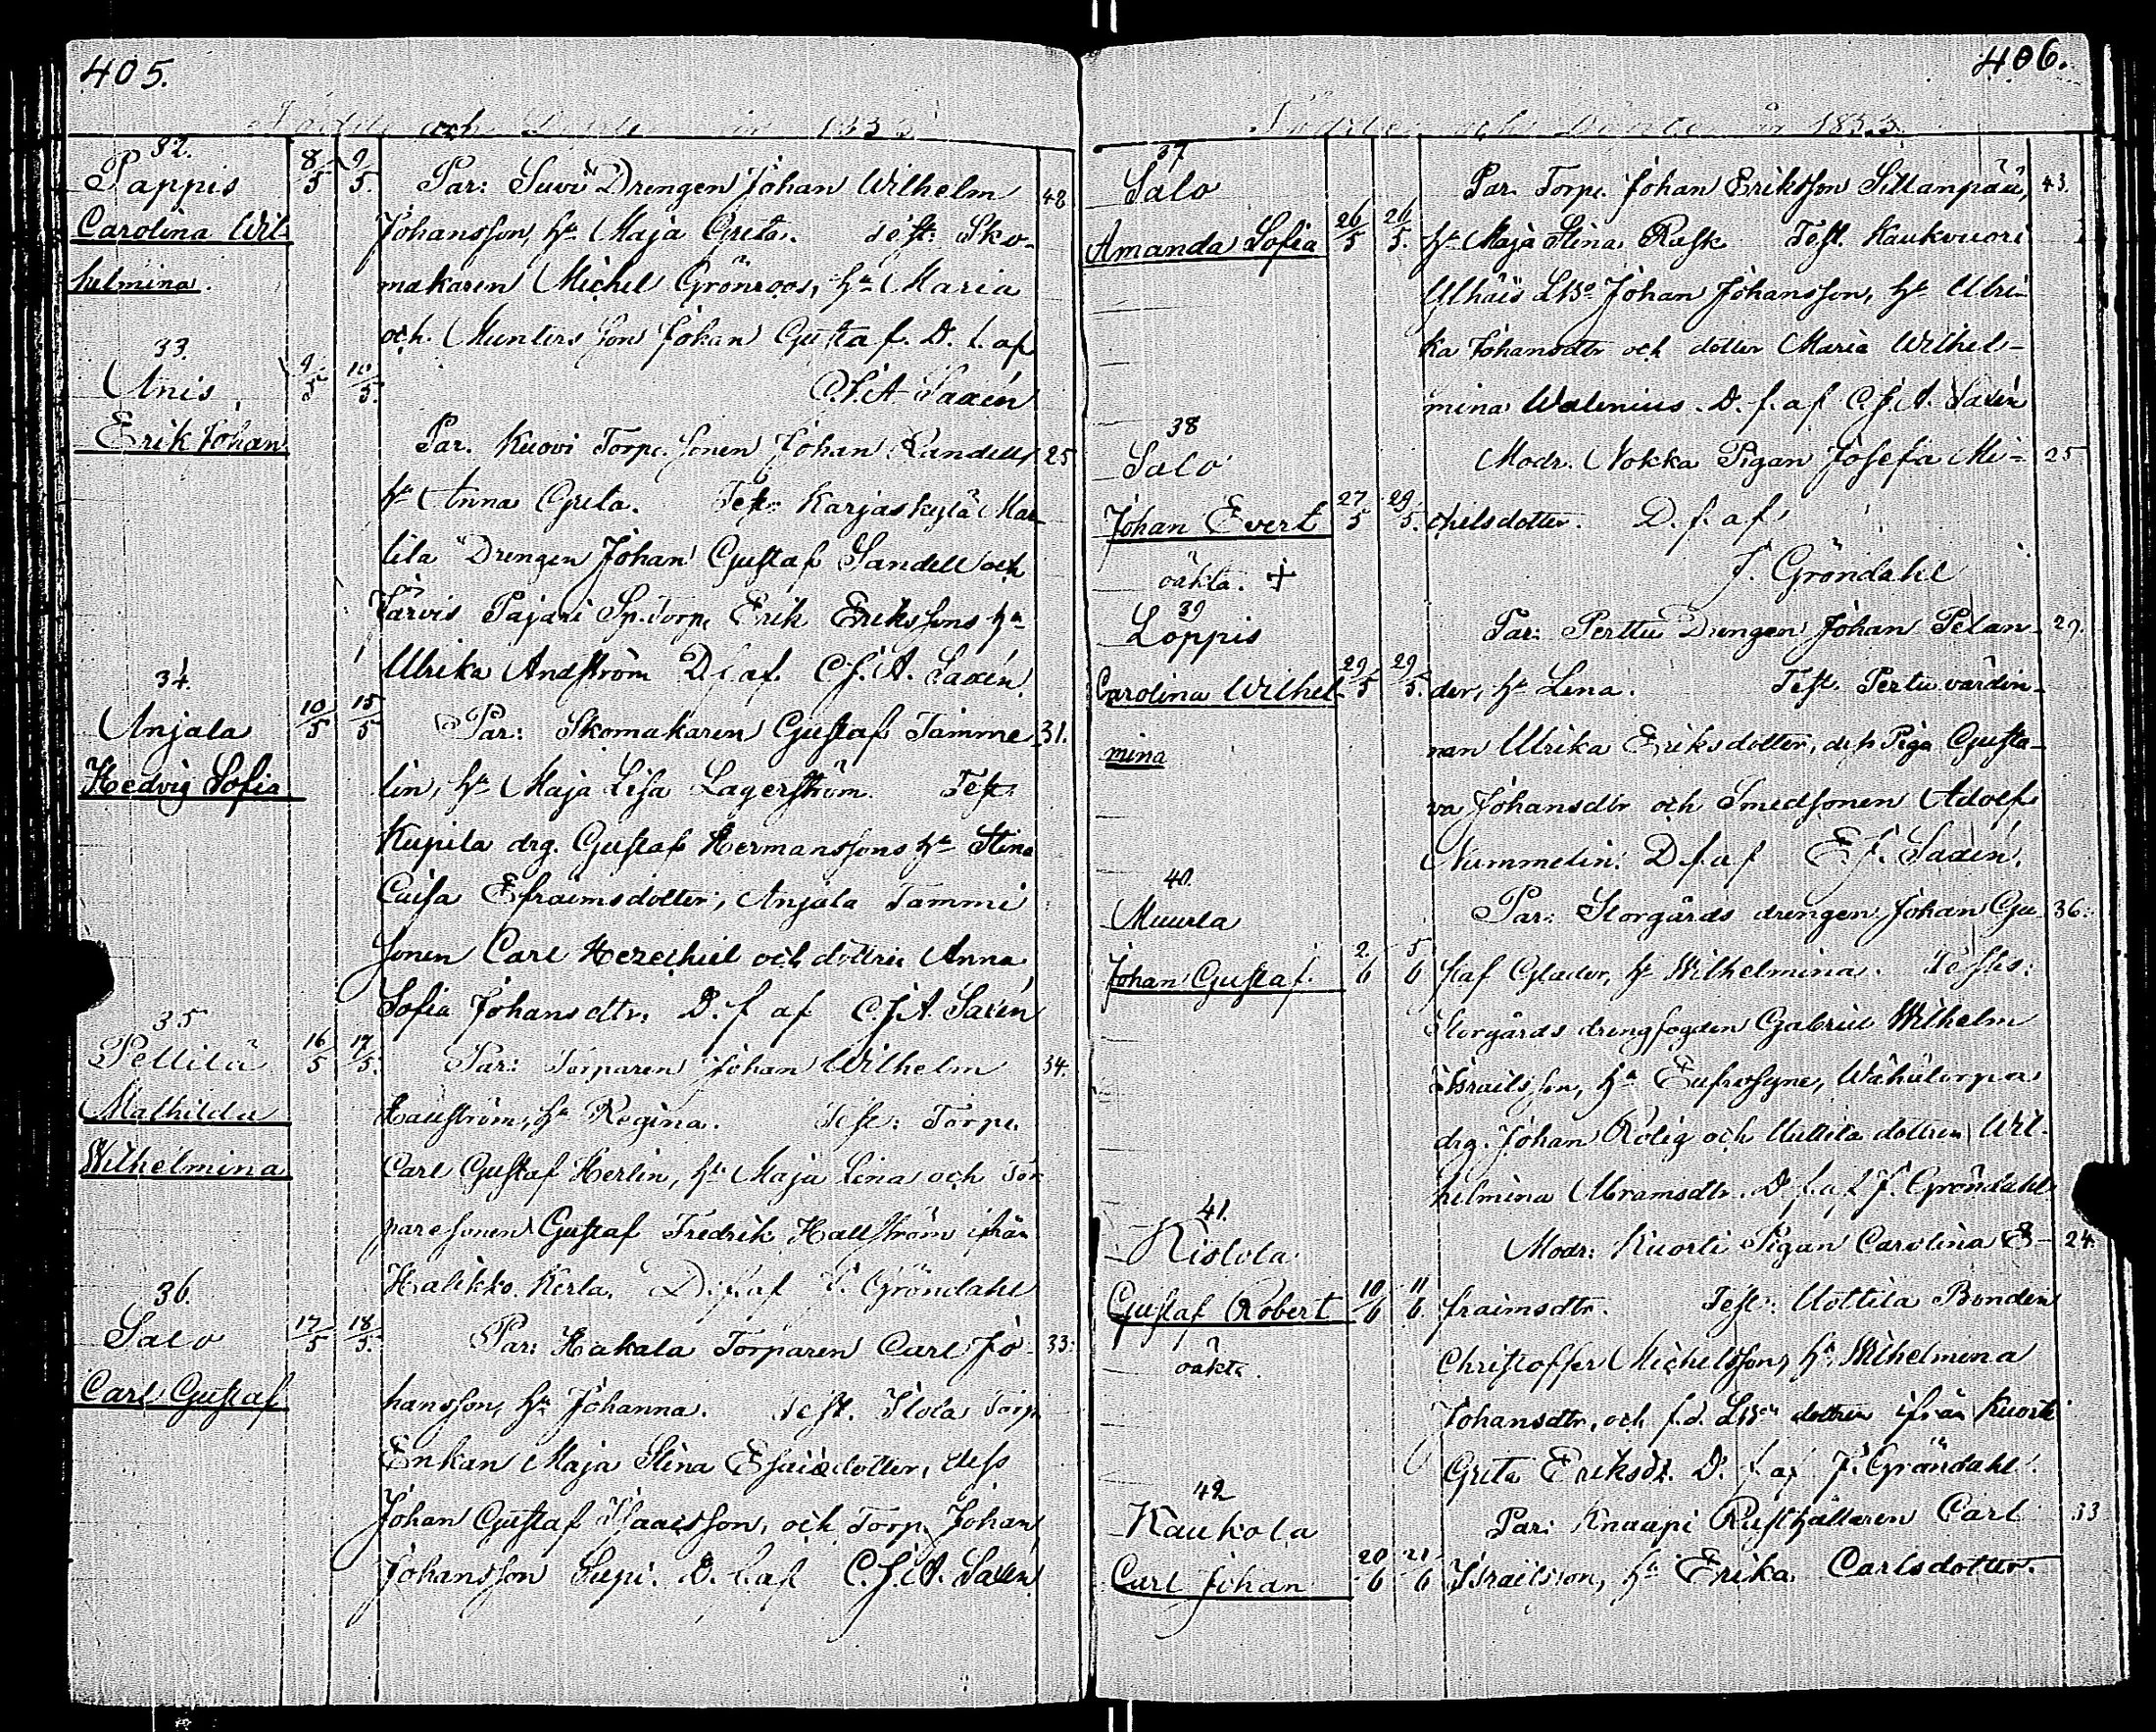 405.
Födde och Döpte år 1853
32.
Pappis
Carolina Wil-
helmina.
8/5 9/5.
Par: Suvi Drengen Johan Wilhelm 48
Johansson, h:u Maja Greta. Test: Sko-
makaren Michel Grönroos, h:u Maria
och Munters son Johan Gustaf. D. f. af
C.J.A Saxén
33.
Anis
Erik Johan
9/5 10/5.
Par. Kuovi Torp. sonen Johan Randell, 25
h:u Anna Greta. Test: Karjaskylä Mat-
tila Drengen Johan Gustaf Sandell och
Järvis Pajari Sp. torp. Erik Erikssons h:u
Ulrika Andström D. f. af. C.J.A. Saxén.
34.
Anjala
Hedvig Sofia
10/5 15/5
Par: Skomakaren Gustaf Tamme- 31.
lin, h:u Maja Lisa Lagerström. Test:
Kupila drg. Gustaf Hermanssons h:u Stina
Caisa Efraimsdotter, Anjala Tammi
sonen Carl Hezechiel och dottren Anna
Sofia Johansdtr. D. f af C.J.A. Saxén
35
Pellilä
Mathilda
Wilhelmina
16/5 17/5.
Par: Torparen Johan Wilhelm 34.
Hallström, h:u Regina. Test: Torp.
Carl Gustaf Herlin, h:u Maja Lena och Tor-
paresonen Gustaf Fredrik Hallström ifrån
Halikko Kerla. D. f. af J. Gröndahl
36.
Salo
Carl Gustaf
17/5 18/5.
Par: Hakala Torparen Carl Jo- 33.
hansson, h:u Johanna. Test. Ilola Torp.
Enkan Maja Stina Esaiedotter, dess
Johan Gustaf Isaacsson, och Torp. Johan
Johansson Supi. D. f. af C.J.A. Saxén
406.
Födde och Döpte år 1853.
37
Salo
Amanda Sofia
26/5 26/5.
Par. Torp. Johan Eriksson Sillanpää, 43.
h:u Maja Stina Rask Test. Kaukvuori
Johan Johansson, h:u Ulri-
ka Johansdtr och dotter Maria Wilhel-
mina Walenius. D. f. af C.J.A. Saxén
38
Salo
Johan Evert
oäkta. +
27/5 29/5.
Modr. Nokka Pigan Josefa Mi- 25
chelsdotter. D. f. af
J. Gröndahl
39
Loppis
Carolina Wilhel-
mina
29/5 29/5.
Par: Perttu Drengen Johan Pelan- 29.
der, h:u Lena. Test. Pertu värdin-
nan Ulrika Eriksdotter, dess Piga Gusta-
va Johansdtr och Smedsonen Adolf
Nummelin. D. f. af E.J. Saxén.
40.
Muurla
Johan Gustaf.
2/6 5/6
Par: Storgårds drengen Johan Gu- 36.
staf Glader, h:u Wilhelmina. Testes:
Storgårds drengfogden Gabriel Wilhelm
Israilsson, h:u Eufrosyne, Wähätorpa
drg. Johan Rolig och Uutila dottren Wil-
helmina Abramsdtr. D. f. af J. Gröndahl
41.
Kistola
Gustaf Robert
oäkta.
10/6 11/6.
Modr: Kuorti Pigan Carolina E- 24.
fraimsdtr. Test: Uottila Bonden
Christoffer Michelsson, h:u Wilhelmina
Johansdtr, och f.d. dottren ifrån Kuorti
Greta Eriksdr. D. f. af J. Gröndahl.
42
Kaukola
Carl Johan
20/6 21/6
Par: Knaapi Rusthållaren Carl 33
Israilsson, h:u Erika Carlsdotter.